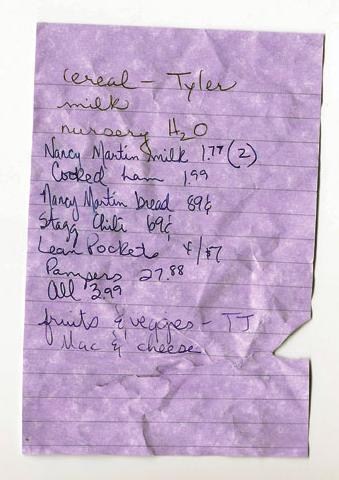 cereal - Tyler
milk
nursery H2O
Nancy Martin milk 1.77 (2)
Cooked ham 1.99
Nancy Martin bread 89¢
Stagg Chili 69¢
Lean Pockets 4/$7
Pampers 27.88
All 3.99
fruits & veggies - TJ
Mac & cheese